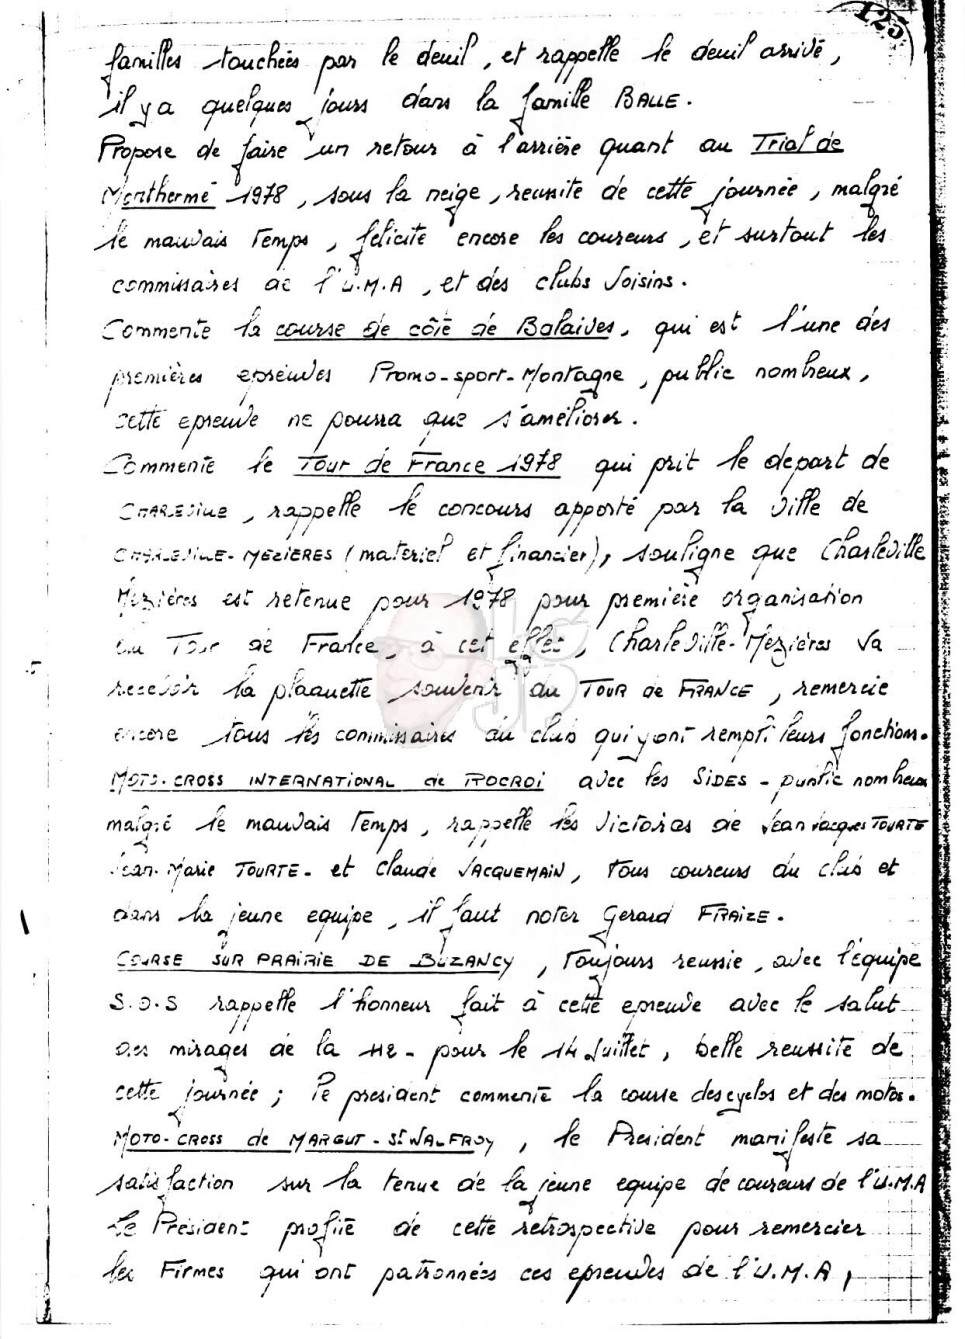 125
familles touchées par le deuil, et rappelle le deuil arrivé,
il y a quelques jours dans la famille BALLE.
Propose de faire un retour à l'arrière quant au Trial de
Monthermé 1978, sous la neige, reussite de cette journée, malgré
le mauvais temps, felicite encore les coureurs, et surtout les
commissaires de l'U.M.A, et des clubs voisins.
Commente la course de côte de Balaives, qui est l'une des
premières epreuves Promo-sport-Montagne, public nombreux,
cette epreuve ne pourra que s'améliorer.
Commente le Tour de France 1978 qui prit le depart de
CHARLEVILLE, rappelle le concours apporté par la ville de
CHARLEVILLE-MEZIERES (materiel et financier), souligne que Charleville
Mézières est retenue pour 1978 pour première organisation
du Tour de France, à cet effet, Charleville-Mezières va
recevoir la plaquette souvenir du TOUR de FRANCE, remercie
encore tous les commissaires du club qui y ont rempli leurs fonctions.
MOTO-CROSS INTERNATIONAL de ROCROI avec les SIDES - public nombreux
malgré le mauvais temps, rappelle les victoires de Jean Jacques TOURTE
Jean-Marie TOURTE - et Claude JACQUEMAIN, tous coureurs du club et
dans la jeune equipe, il faut noter Gerard FRAIZE.
COURSE SUR PRAIRIE DE BUZANCY, toujours reussie, avec l'équipe
S.O.S rappelle l'honneur fait à cette epreuve avec le salut
des mirages de la 112 - pour le 14 Juillet, belle reussite de
cette journée; le president commente la course des cyclos et des motos.
MOTO-CROSS de MARGUT-St WALFROY, le President manifeste sa
satisfaction sur la tenue de la jeune equipe de coureurs de l'U.M.A
Le President profite de cette retrospective pour remercier
les Firmes qui ont patronnées ces epreuves de l'U.M.A,